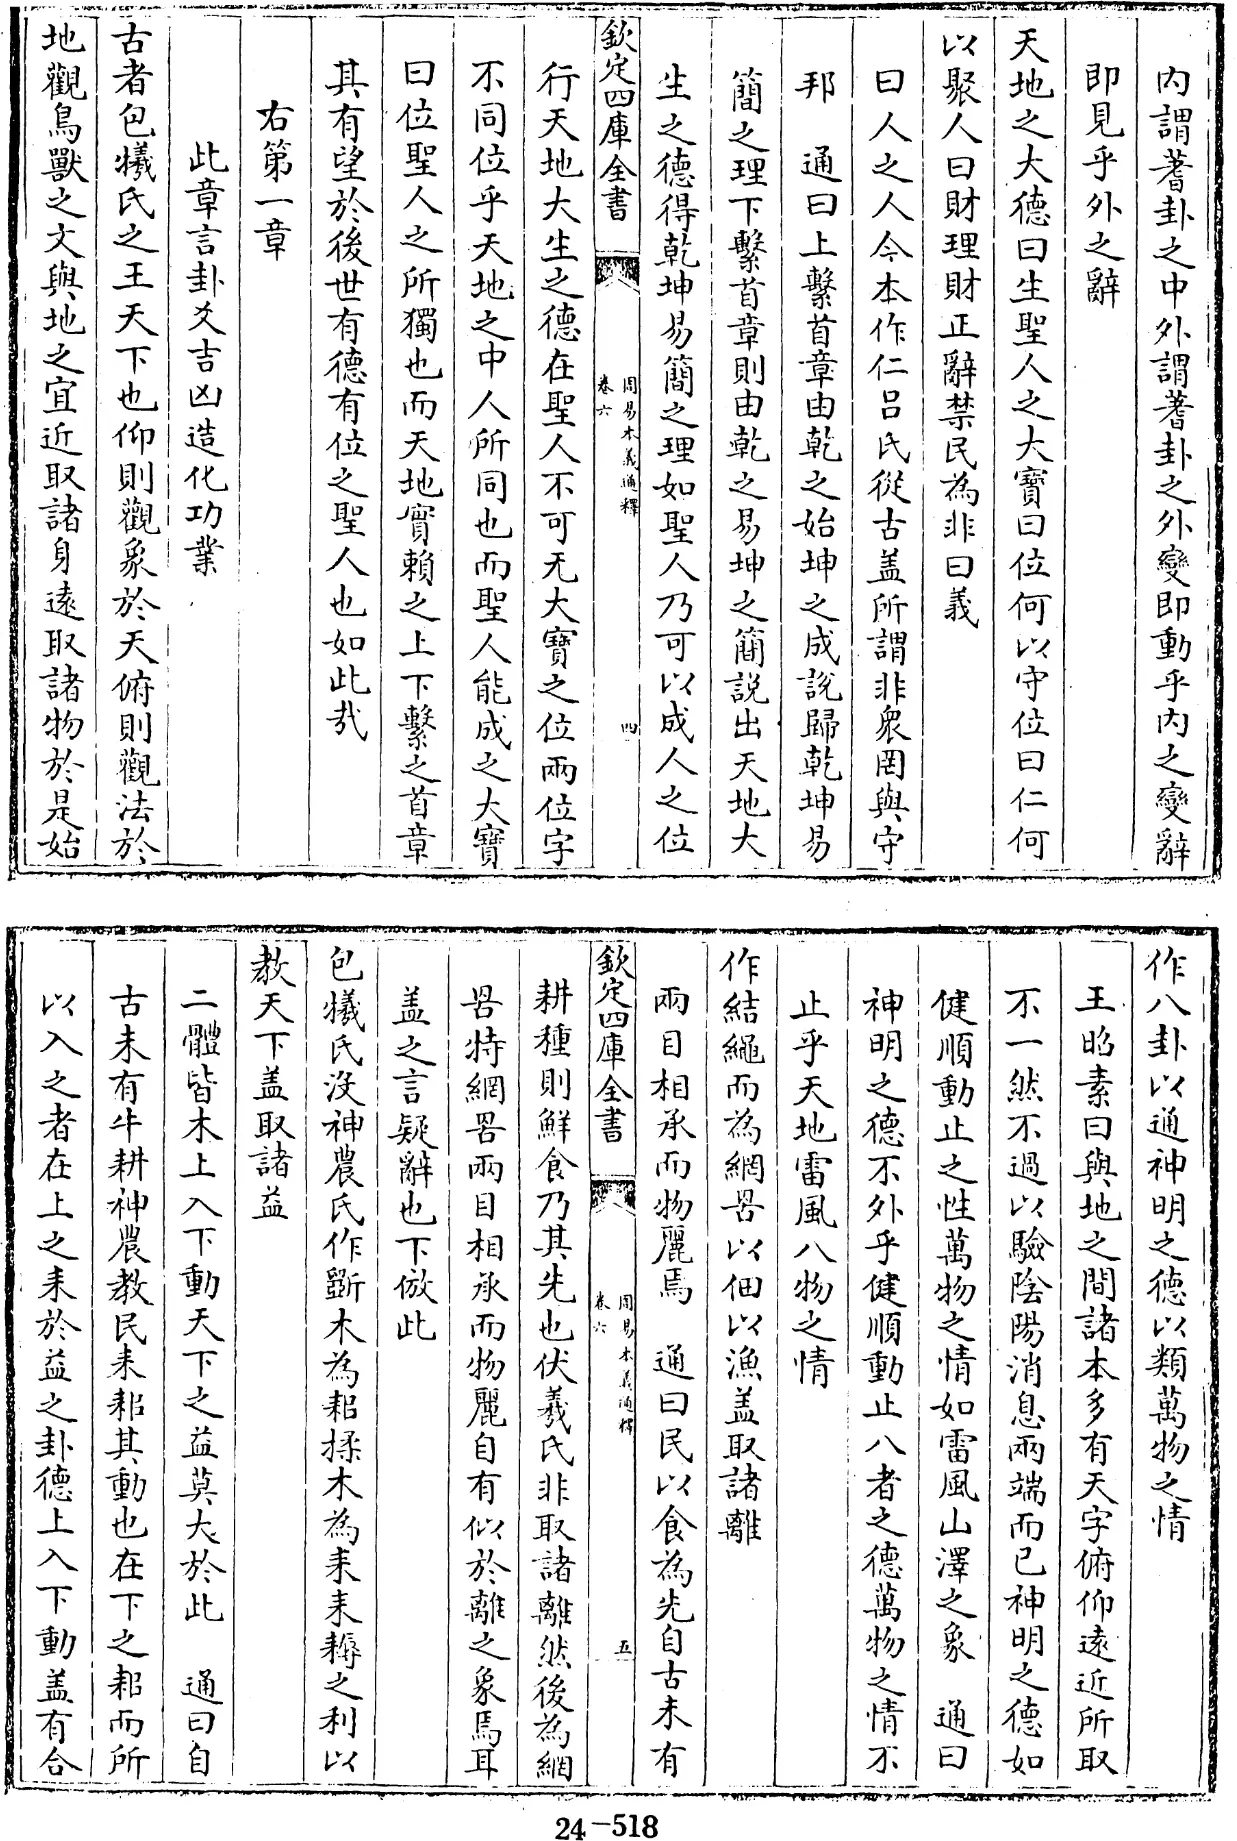 内謂蓍卦之中外謂蓍卦之外變即動乎内之變辭
即見乎外之辭
天地之大德曰生聖人之大寶曰位何以守位曰仁何
以聚人曰財理財正辭禁民為非曰義
曰人之人今本作仁吕氏從古盖所謂非衆罔與守
邦　通曰上繫首章由乾之始坤之成說歸乾坤易
簡之理下繫首章則由乾之易坤之簡說出天地大
生之德得乾坤易簡之理如聖人乃可以成人之位
欽定四庫全書
周易本義通釋
卷六
四
行天地大生之德在聖人不可无大寶之位兩位字
不同位乎天地之中人所同也而聖人能成之大寶
曰位聖人之所獨也而天地實賴之上下繫之首章
其有望於後世有德有位之聖人也如此㢤
右第一章
此章言卦爻吉凶造化功業
古者包犧氏之王天下也仰則觀象於天俯則觀法於
地觀鳥獸之文與地之宜近取諸身遠取諸物於是始
作八卦以通神明之德以類萬物之情
王昭素曰與地之間諸本多有天字俯仰遠近所取
不一然不過以驗陰陽消息兩端而已神明之德如
健順動止之性萬物之情如雷風山澤之象　通曰
神明之德不外乎健順動止八者之德萬物之情不
止乎天地雷風八物之情
作結繩而為網罟以佃以漁盖取諸離
兩目相承而物麗焉　通曰民以食為先自古未有
欽定四庫全書
周易本義通釋
卷六
五
耕種則鮮食乃其先也伏羲氏非取諸離然後為網
罟特網罟兩目相承而物麗自有似於離之象焉耳
盖之言疑辭也下倣此
包犧氏沒神農氏作斷木為耜揉木為耒耒耨之利以
教天下盖取諸益
二體皆木上入下動天下之益莫大於此　通曰自
古未有牛耕神農教民耒耜其動也在下之耜而所
以入之者在上之耒於益之卦德上入下動盖有合
24-518